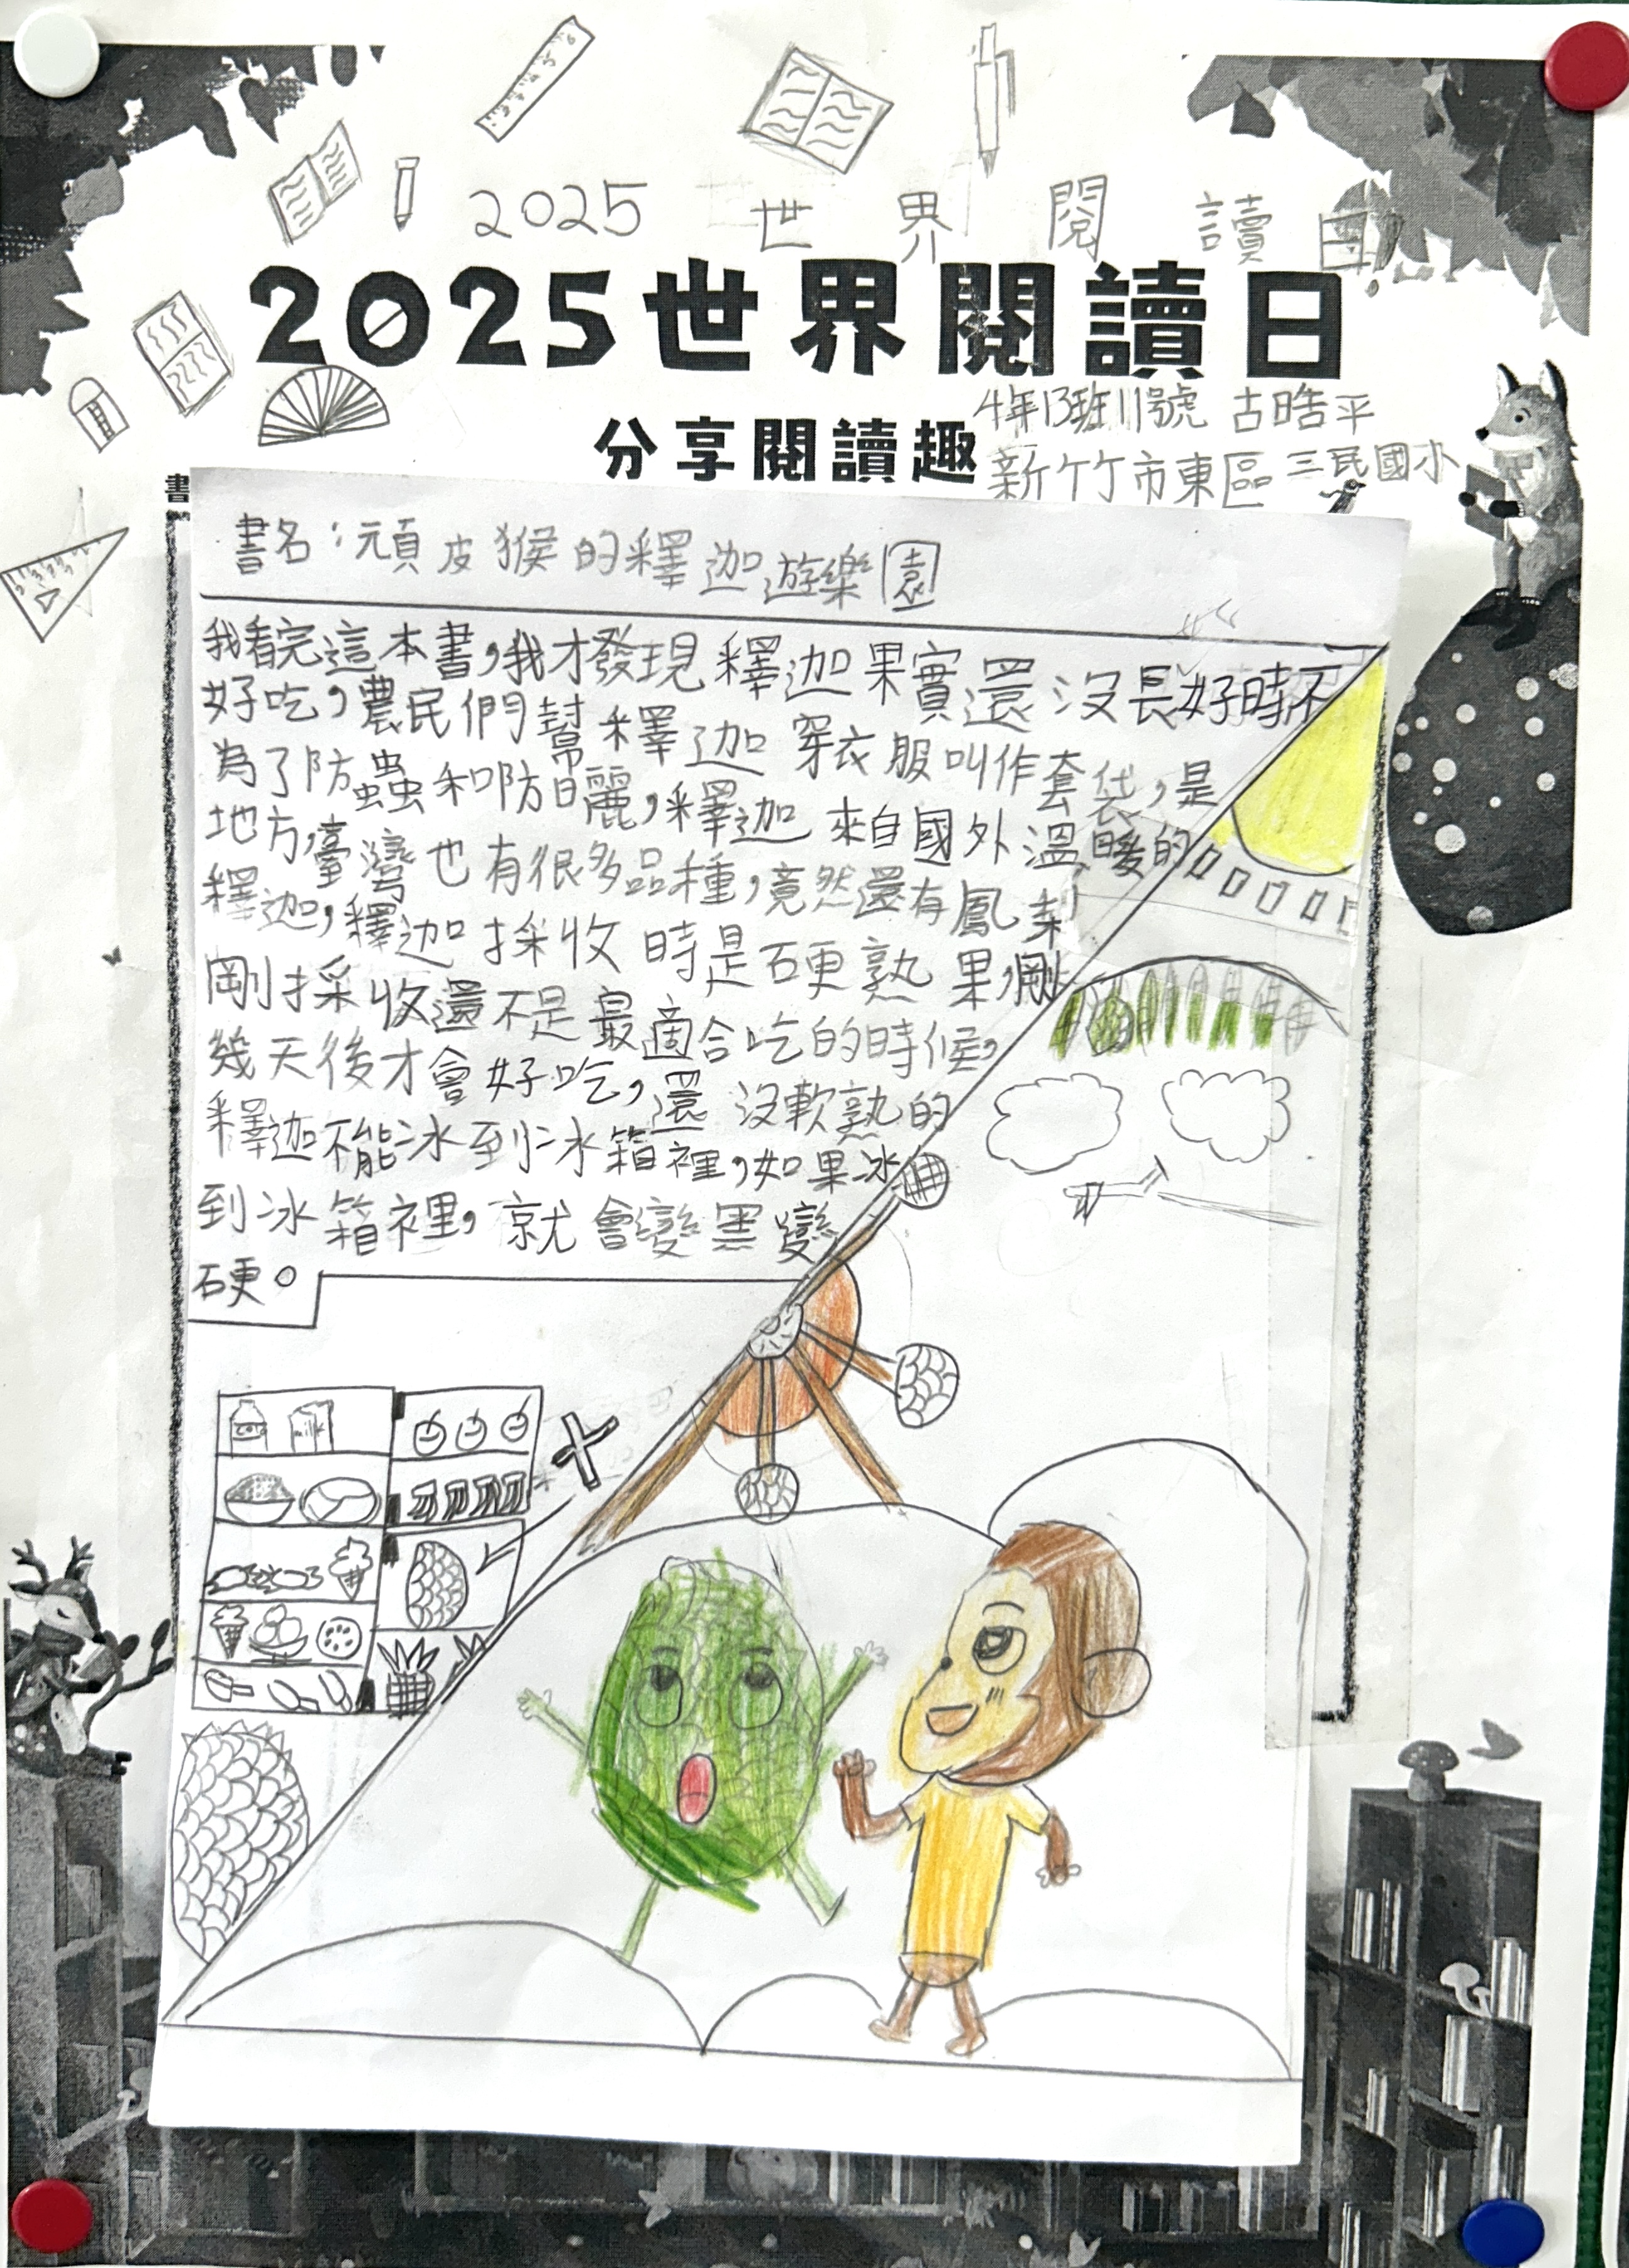 2025 世界閱讀日
2025世界閱讀日
分享閱讀趣
4年13班11號 古晧平
新竹市東區三民國小
書
書名：頑皮猴的釋迦遊樂園
我看完這本書，我才發現釋迦果實還沒長好時不
好吃，農民們幫釋迦穿衣服叫作套袋，是
為了防蟲和防日麗，釋迦來自國外溫暖的
地方，臺灣也有很多品種，竟然還有鳳梨
釋迦，釋迦採收時是硬熟果，剛
剛採收還不是最適合吃的時候，
幾天後才會好吃，還沒軟熟的
釋迦不能冰到冰箱裡，如果冰
到冰箱裡，就會變黑變
硬。
milk